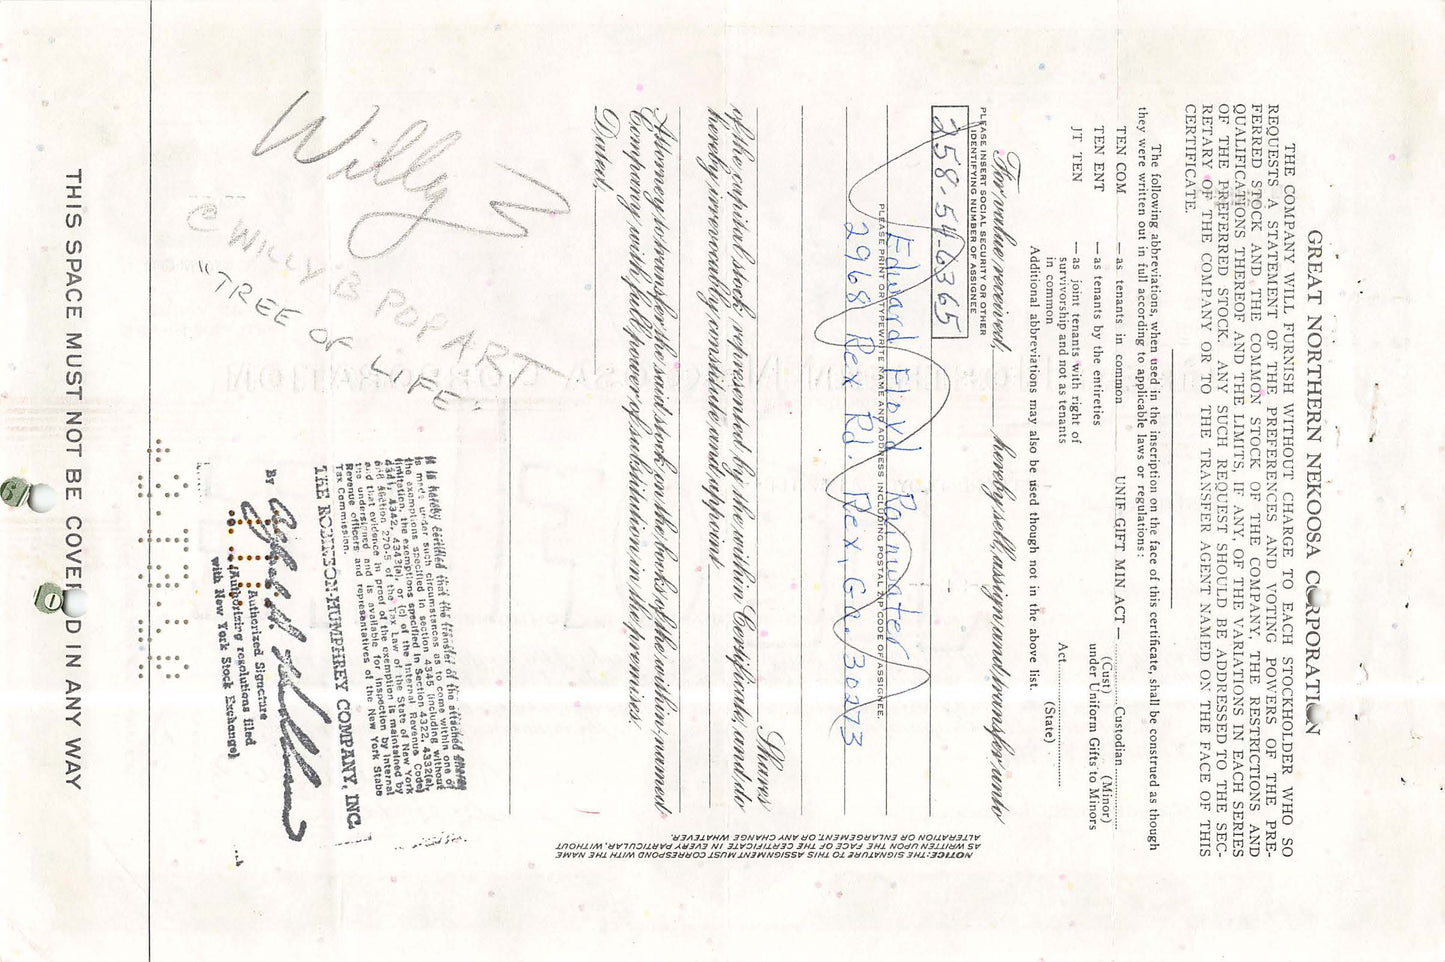 GREAT NORTHERN NEKOOSA CORPORATION
THE COMPANY WILL FURNISH WITHOUT CHARGE TO EACH STOCKHOLDER WHO SO
REQUESTS A STATEMENT OF THE PREFERENCES AND VOTING POWERS OF THE PRE-
FERRED STOCK AND THE COMMON STOCK OF THE COMPANY, THE RESTRICTIONS AND
QUALIFICATIONS THEREOF AND THE LIMITS, IF ANY, OF THE VARIATIONS IN EACH SERIES
OF THE PREFERRED STOCK. ANY SUCH REQUEST SHOULD BE ADDRESSED TO THE SEC-
RETARY OF THE COMPANY OR TO THE TRANSFER AGENT NAMED ON THE FACE OF THIS
CERTIFICATE.
The following abbreviations, when used in the inscription on the face of this certificate, shall be construed as though
they were written out in full according to applicable laws or regulations:
TEN COM — as tenants in common UNIF GIFT MIN ACT — Custodian
(Cust) (Minor)
TEN ENT — as tenants by the entireties under Uniform Gifts to Minors
JT TEN — as joint tenants with right of
survivorship and not as tenants Act
in common (State)
Additional abbreviations may also be used though not in the above list.
For value received, hereby sell, assign and transfer unto
PLEASE INSERT SOCIAL SECURITY OR OTHER
IDENTIFYING NUMBER OF ASSIGNEE
258-54-6365
Edward Floyd Rainwater
PLEASE PRINT OR TYPEWRITE NAME AND ADDRESS INCLUDING POSTAL ZIP CODE OF ASSIGNEE.
2968 Rex Rd. Rex, Ga. 30273
Shares
of the capital stock represented by the within Certificate, and do
hereby irrevocably constitute and appoint
Attorney to transfer the said stock on the books of the within named
Company with full power of substitution in the premises.
Dated,
NOTICE: THE SIGNATURE TO THIS ASSIGNMENT MUST CORRESPOND WITH THE NAME
AS WRITTEN UPON THE FACE OF THE CERTIFICATE IN EVERY PARTICULAR, WITHOUT
ALTERATION OR ENLARGEMENT, OR ANY CHANGE WHATEVER.
Willy B
© WILLY B POP ART
"TREE OF LIFE"
It is hereby certified that the transfer of the attached shares
is made under such circumstances as to come within one of
the exemptions specified in section 4345 (including without
limitation, the exemptions specified in Section 4322, 4332(a),
4341, 4342, 4343(a), or (c) of the Internal Revenue Code)
and section 270-5 of the Tax Law of the State of New York
and that evidence in proof of the exemption is maintained by
the undersigned and is available for inspection by Internal
Revenue officers and representatives of the New York State
Tax Commission.
THE ROBINSON-HUMPHREY COMPANY, INC.
BY
Authorized Signature
(Authorizing resolutions filed
with New York Stock Exchange)
THIS SPACE MUST NOT BE COVERED IN ANY WAY